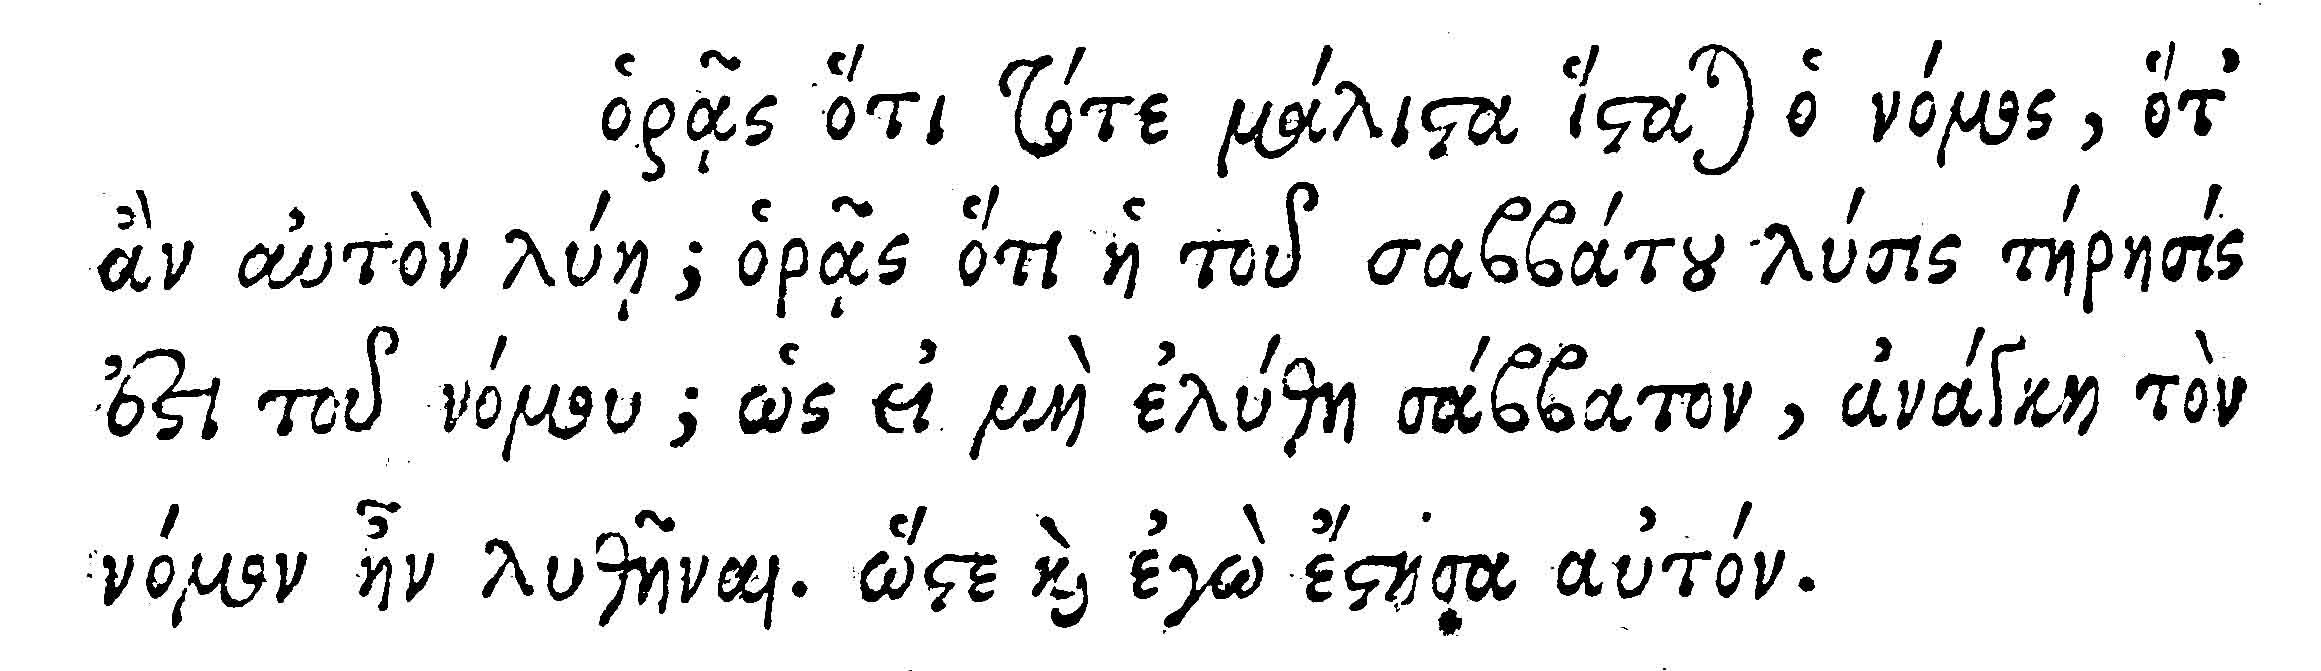 ὁρᾷς ὅτι τότε μάλιστα ἵσταται ὁ νόμος, ὅτ’
ἂν αὐτὸν λύῃ; ὁρᾷς ὅτι ἡ τοῦ σαββάτου λύσις τήρησίς
ἐστι τοῦ νόμου; ὡς εἰ μὴ ἐλύθη σάββατον, ἀνάγκη τὸν
νόμον ἦν λυθῆναι. ὥστε καὶ ἐγὼ ἔστησα αὐτόν.